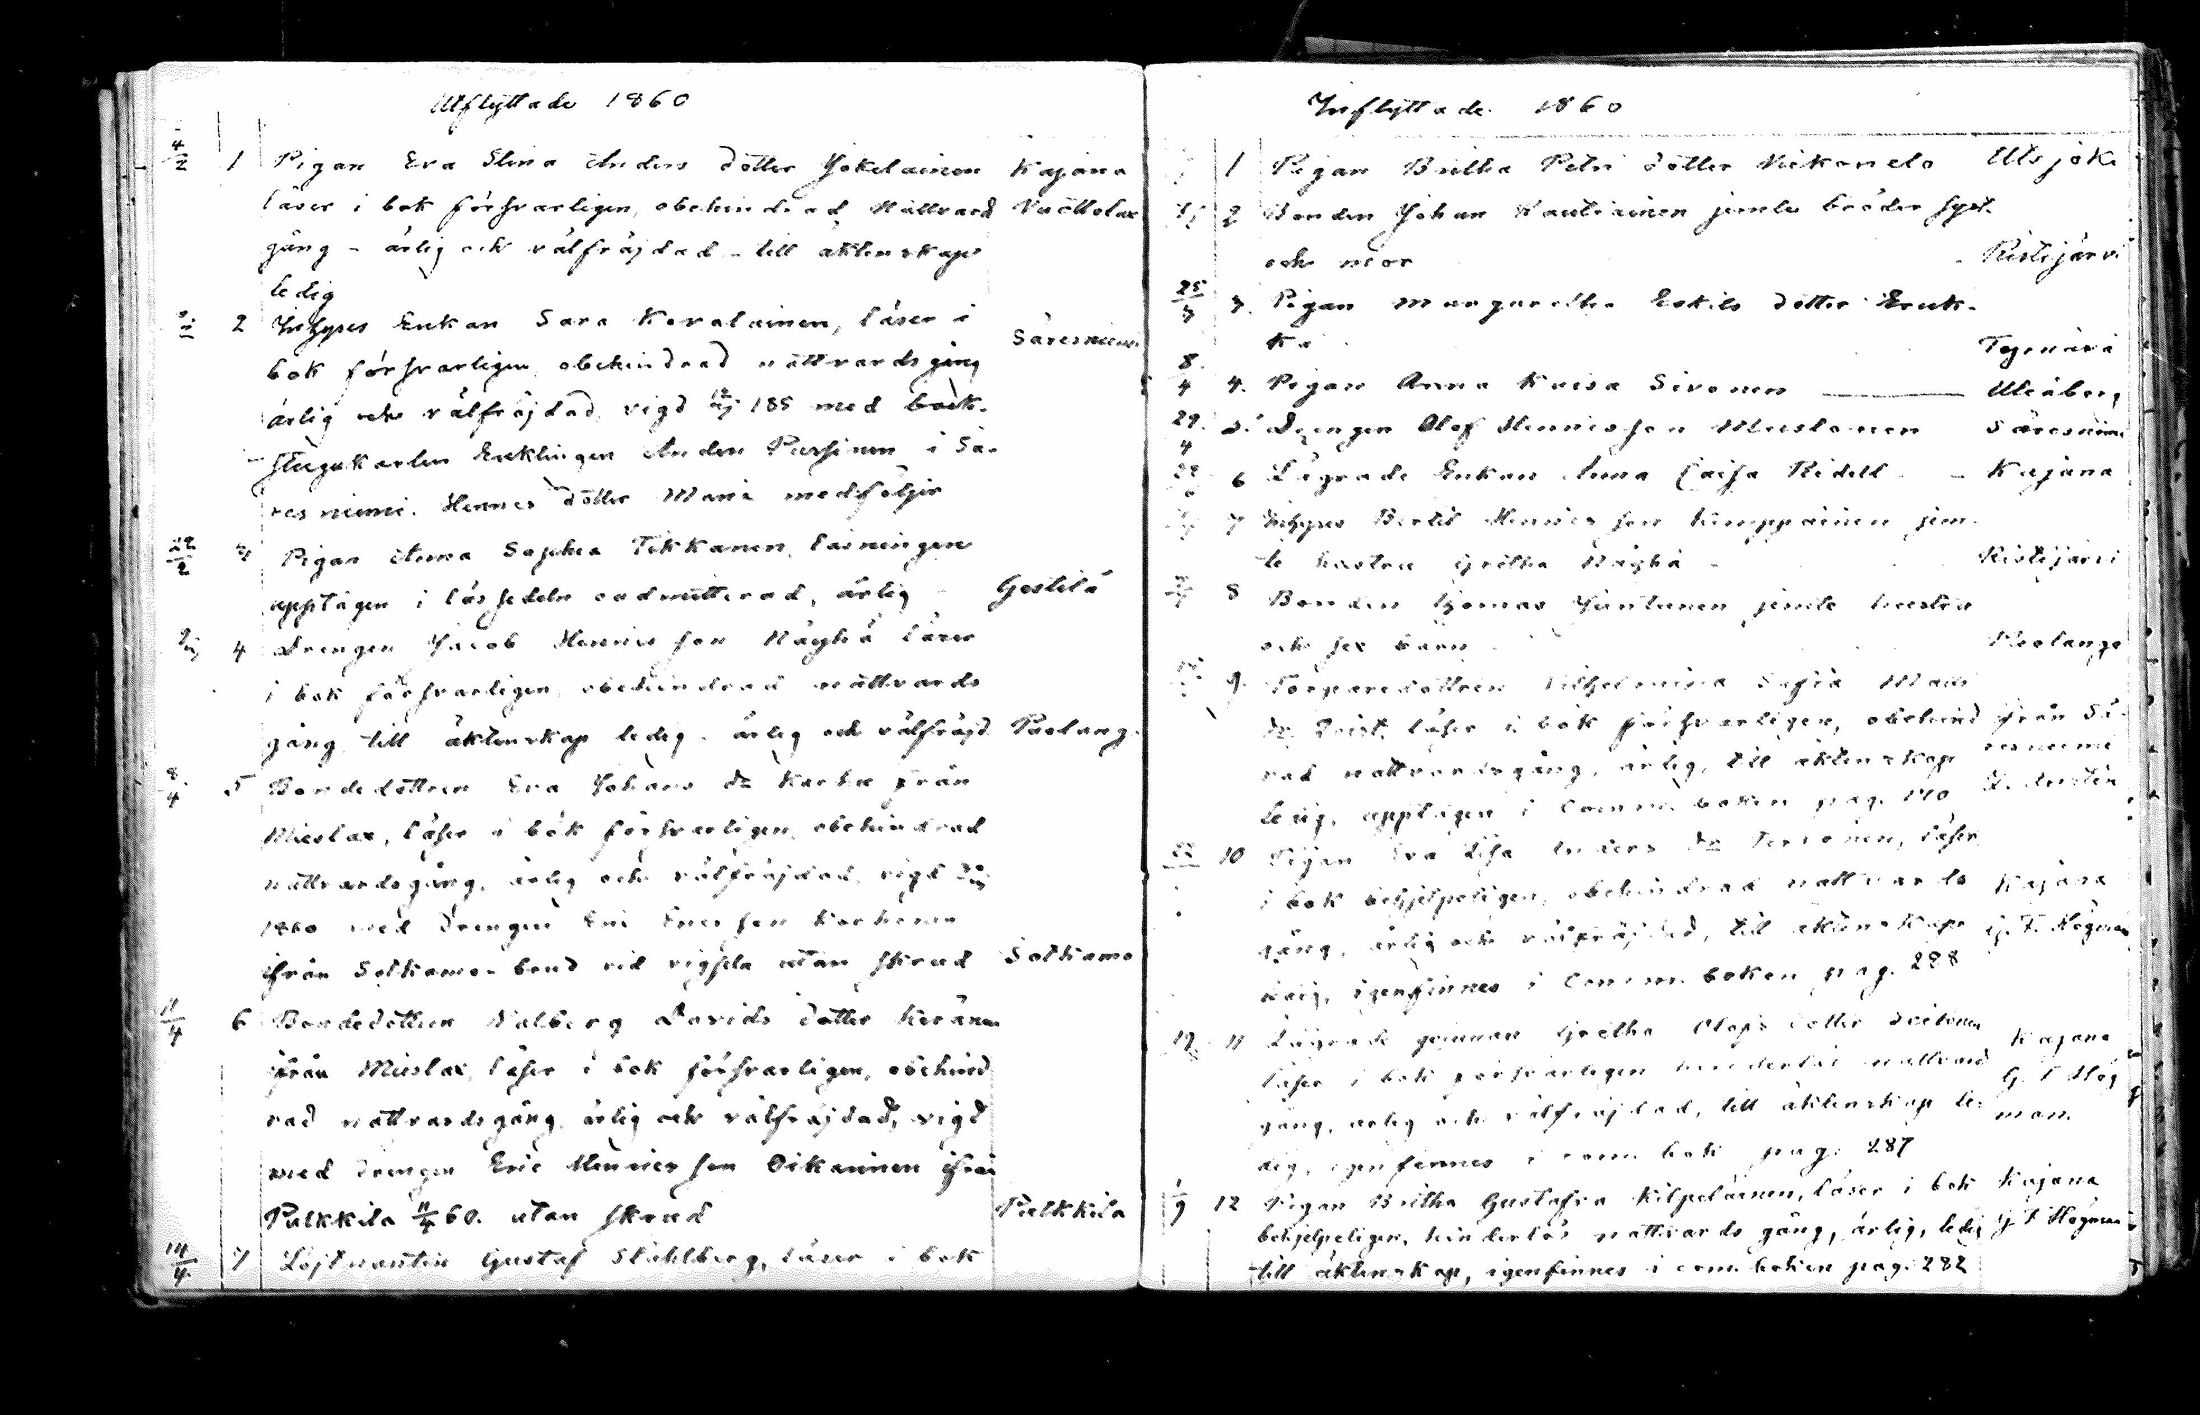 Utflyttade 1860
4/2 1 Pigan Eva Stina Anders dotter Jokelainen Kajana
läser i bok försvarligen, obehindrad Nattvard Vuottolax
gång - ärlig och välfräjdad - till äktenskap
ledig
2 Inhyses Enkan Sara Kovalainen, läser i Säresniemi
bok försvarligen obehindrad nattvards gång
ärlig och välfräjdad, vigd 185 med back-
stugukarlen Enklingen Anders Pursinen i Sä-
resniemi. Hennes dotter Maria medföljer
22/2 3 Pigan Anna Sophia Tikkanen, läsningen
upptagen i läs sedeln oadmitterad, ärlig - Gestilä
4 Drengen Jacob Hennes son Näyhä läser
i bok försvarligen obehindrad nattvards
gång till äktenskap ledig - ärlig och välfräjd. Puolang.
8/4 5 Bondedottren Eva Johans dr Karhu från
Mieslax, läser i bok försvarligen, obehindrad
nattvardsgång, ärlig och välfräjdad, vigd
1860 med drengen Eric Ers son Korhonen
ifrån Sotkamo - brud vid vigseln utan skrud Sotkamo
11/4 6 Bondedottren Valborg Davids dotter Keränen
ifrån Mieslax, läser i bok försvarligen, obehind
rad nattvardsgång, ärlig och välfräjdad, vigd
med drengen Eric Hennes son Oikarinen ifrån
Pulkkila 11/4 60. utan skrud Pulkkila
14/4 7 Löjtnanten Gustaf Ståhlberg, läser i bok
Inflyttade 1860
1 Pigan Britha Petri dotter Utsjoki
2 Bonden Johan Rautiainen jemte bröder syst.
och mor - Ristijärvi
25/3 3. Pigan Margaretha Eskils dotter
Ka Tyrnävä
8/4 4. Pigan Anna Kaisa Sivonen Uleåborg
29/4 5. Drengen Olof Hennes son Mustonen Säresniemi
22 6 Lägrade Enkan Anna Caisa Ridell - Kajana
7 Inhyses Bertil Hennes son Kemppainen jem-
te hustru Gretha Näyhä - Ristijärvi
8 Bonden Thomas Juntunen jemte hustru
och sex barn Puolango
9. Torparedottren Vilhelmina Sofia Mats
dr läser i bok försvarligen, obehind från Sä-
rad nattvardsgång, ärlig, till äktenskap resniemi
ledig, upptagen i Comm. boken pag. 140
22 10 Pigan Eva Lisa Anders dr Tervonen, läser
i bok behjelpeligen, obehindrad nattvards Kajana
gång, ärlig och välfräjdad, till äktenskap G. F. Högman
ledig, igenfinnes i Comm. boken pag. 288
19 11 Lägrade gumman Gretha Olofs dotter Kajana
läser i bok försvarligen hinderlös nattvard G. F. Hög
gång, ärlig och välfräjdad, till äktenskap le- man
dig, igenfinnes i com. bok pag. 287
1/9 12 Pigan Britha Gustafsd Kilpeläinen, läser i bok Kajana
behjelpeligen, hinderlös nattvards gång, ärlig, ledig G F Högman
till äktenskap, igenfinnes i com. boken pag. 282